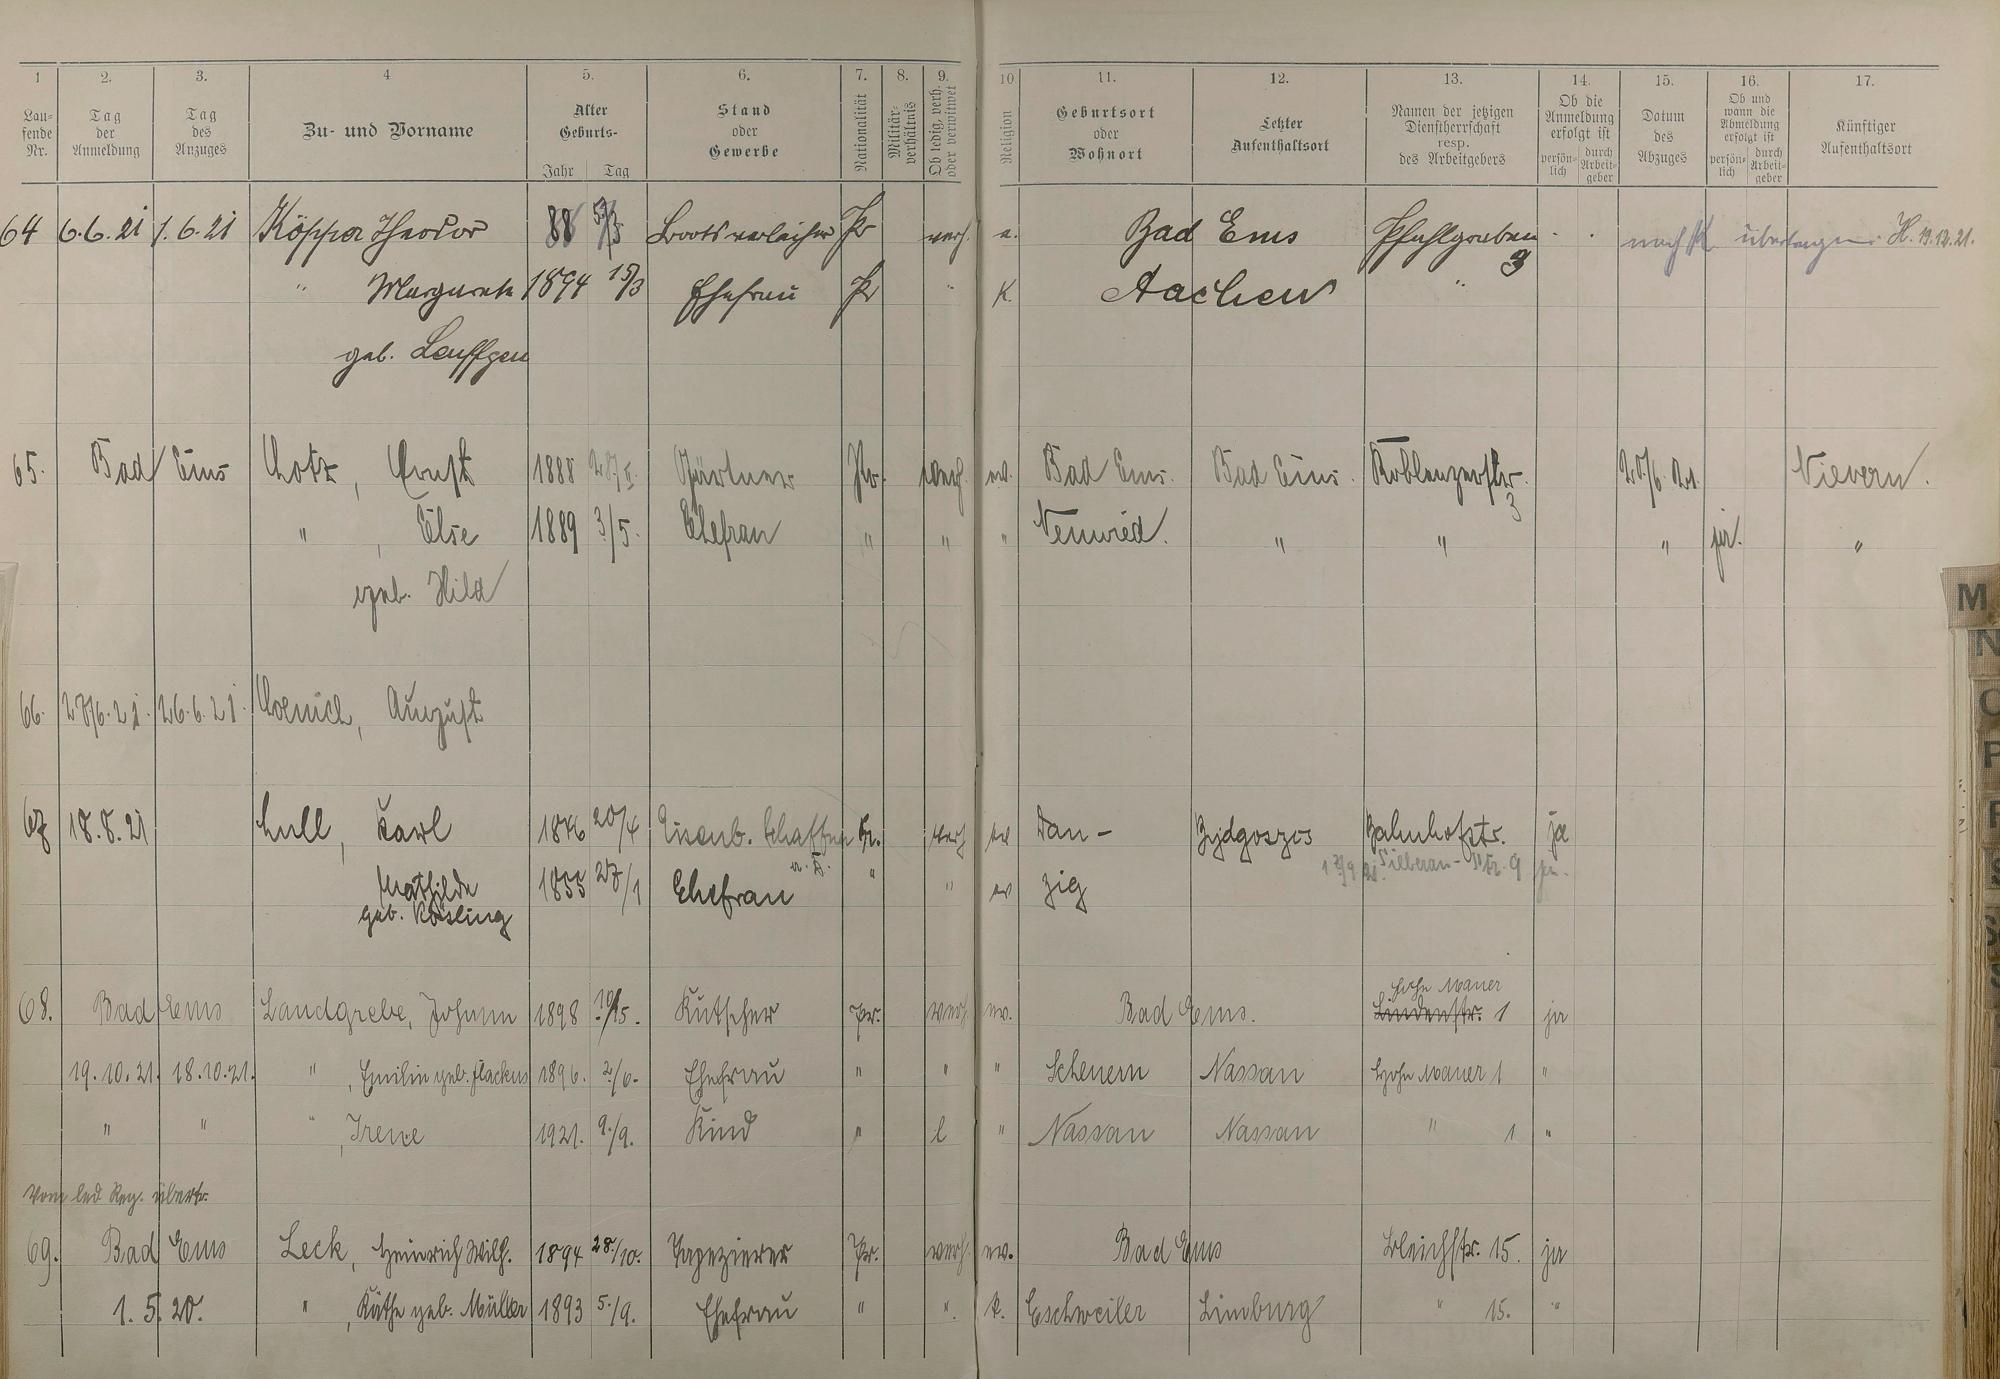 1 2. 3. 4 5. 6. 7. 8. 9. 10 11. 12. 13. 14. 15. 16. 17.
Lau-
fende
Nr.
Tag
der
Anmeldung
Tag
des
Anzuges
Zu- und Vorname
Alter
Geburts-
Jahr Tag
Stand
oder
Gewerbe
Nationalität
Militär-
verhältnis
Ob ledig, verh.
oder verwitwet
Religion
Geburtsort
oder
Wohnort
Letzter
Aufenthaltsort
Namen der jetzigen
Dienstherrschaft
resp.
des Arbeitgebers
Ob die
Anmeldung
erfolgt ist
persön-
lich
durch
Arbeit-
geber
Datum
des
Abzuges
Ob und
wann die
Abmeldung
erfolgt ist
persön-
lich
durch
Arbeit-
geber
Künftiger
Aufenthaltsort
64 6.6.21 1.6.21 Theodor 88 Bootsverleiher Pr verh. e. Bad Ems Pfahlgraben nach K übertragen H. 19.12.21.
" Margarete 1894 15/3 Ehefrau Pr " K. Aachen " 9
geb.
65. Bad Ems Lotz, Ernst 1888 Gärtner Pr. verh. ev. Bad Ems. Bad Ems. Koblenzerstr. 3 Nievern.
" , Else 1889 3/5. Ehefrau " " " Neuwied. " " " ja. "
geb. Hild
66. 27/6.21. 26.6.21. August
67 18.8.21 Lull, Karl 1846 20/4 Eisenb. Schaffner Pr. verh ev Dan- Bydgoszos Bahnhofstr. ja
a. D. Silberau-Str. 9 ja.
Mathilde 1855 27/1 Ehefrau " " ev zig
geb. Kössling
68. Bad Ems Landgrebe, Johann 1898 Kutscher Pr. verh. ev. Bad Ems. Hohe Mauer
Lindenstr. 1 ja
19.10.21. 18.10.21. " , Emilie geb. Flackus 1896. 2/6. Ehefrau " " " Scheuern Nassau Hohe Mauer 1 "
" " " , Irene 1921. 9./9. Kind " l " Nassau Nassau " 1 "
Vom led. Reg. übertr.
69. Bad Ems Leck, Heinrich Wilh. 1894 28./10. Tapezierer Pr. verh. ev. Bad Ems Bleichstr. 15. ja
1.5.20. " , Käthe geb. Müller 1893 5./9. Ehefrau " ". k. Eschweiler Limburg " 15. "
M
N
O
P
R
S